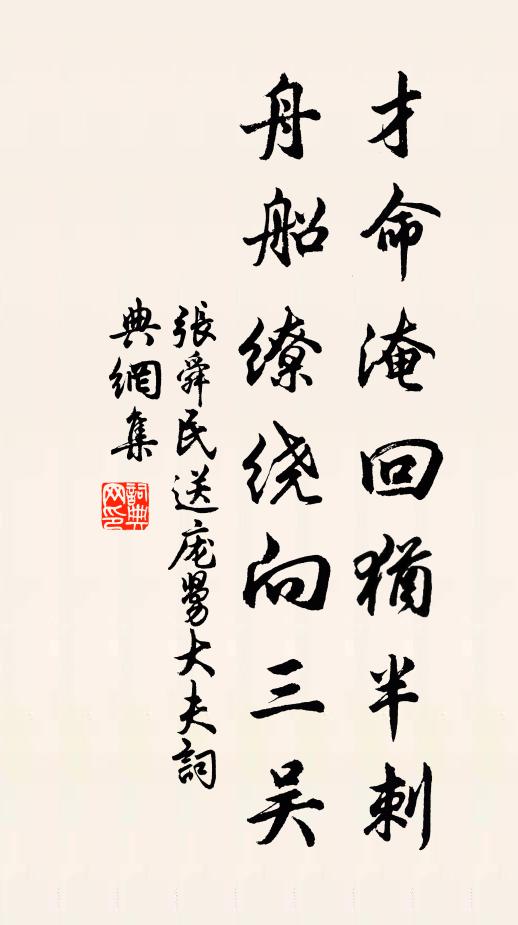 才命淹回猶半刺
舟船繚绕向三吴
張舜民送庞㽦大夫詞
典網集
詞典网印